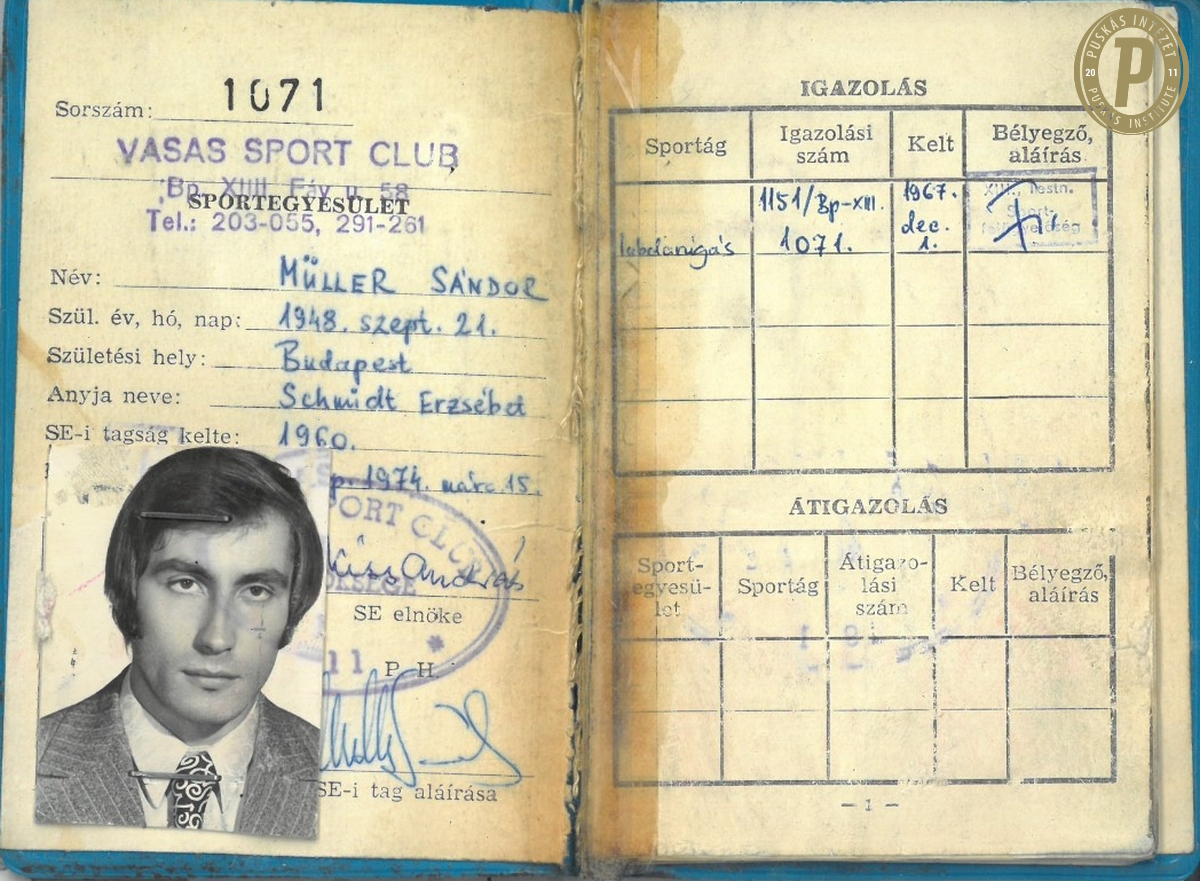 Sorszám: 1071
VASAS SPORT CLUB
Bp. XIII. Fáy u. 58
SPORTEGYESÜLET
Tel.: 203-055, 291-261
Név: MÜLLER SÁNDOR
Szül. év, hó, nap: 1948. szept. 21.
Születési hely: Budapest
Anyja neve: Schmidt Erzsébet
SE-i tagság kelte: 1960.
1974. márc. 15.
SPORT CLUB
Kiss András
SE elnöke
11 P. H.
SE-i tag aláírása
PUSKÁS INTÉZET
2011
P
PUSKÁS INSTITUTE
IGAZOLÁS
Sportág
Igazolási szám
Kelt
Bélyegző, aláírás
labdarúgás
1151/Bp-XIII.
1071.
1967.
dec.
1.
XIII., Testn.
Sport-
felügyelőség
ÁTIGAZOLÁS
Sport-
egyesü-
let
Sportág
Átigazo-
lási
szám
Kelt
Bélyegző,
aláírás
— 1 —